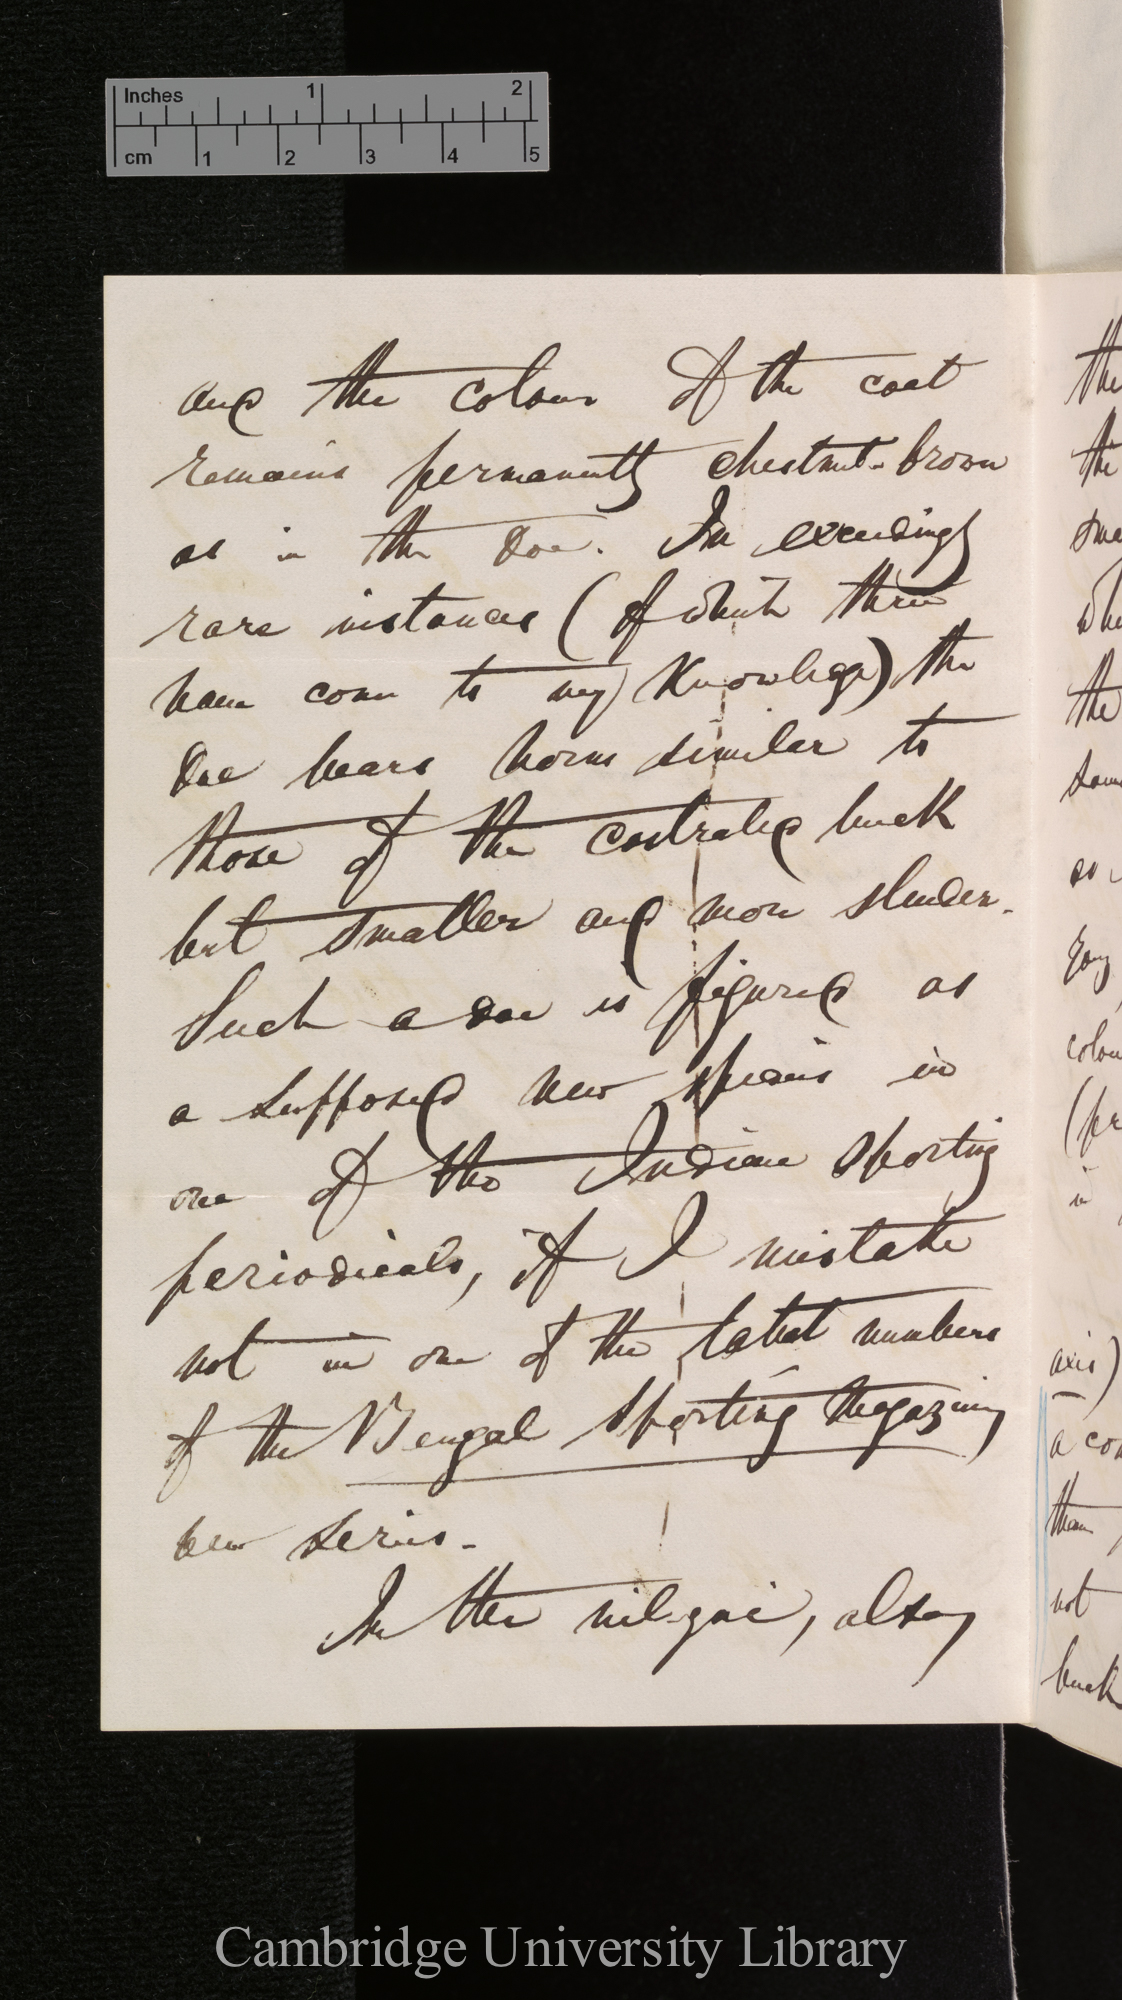 Inches 1 2
cm 1 2 3 4 5
and the colour of the coat
remains permanently chestnut-brown
as in the doe. In exceedingly
rare instances (of which three
have come to my knowledge) the
doe bears horns similar to
those of the castrated buck
but smaller and more slender.
Such a doe is figured as
a supposed new species in
one of the Indian Sporting
periodicals, if I mistake
not in one of the latest numbers
of the Bengal Sporting Magazine,
new series.
In the nil-gai, also,
the
the
the
axis)
a
than
not
buck
Cambridge University Library